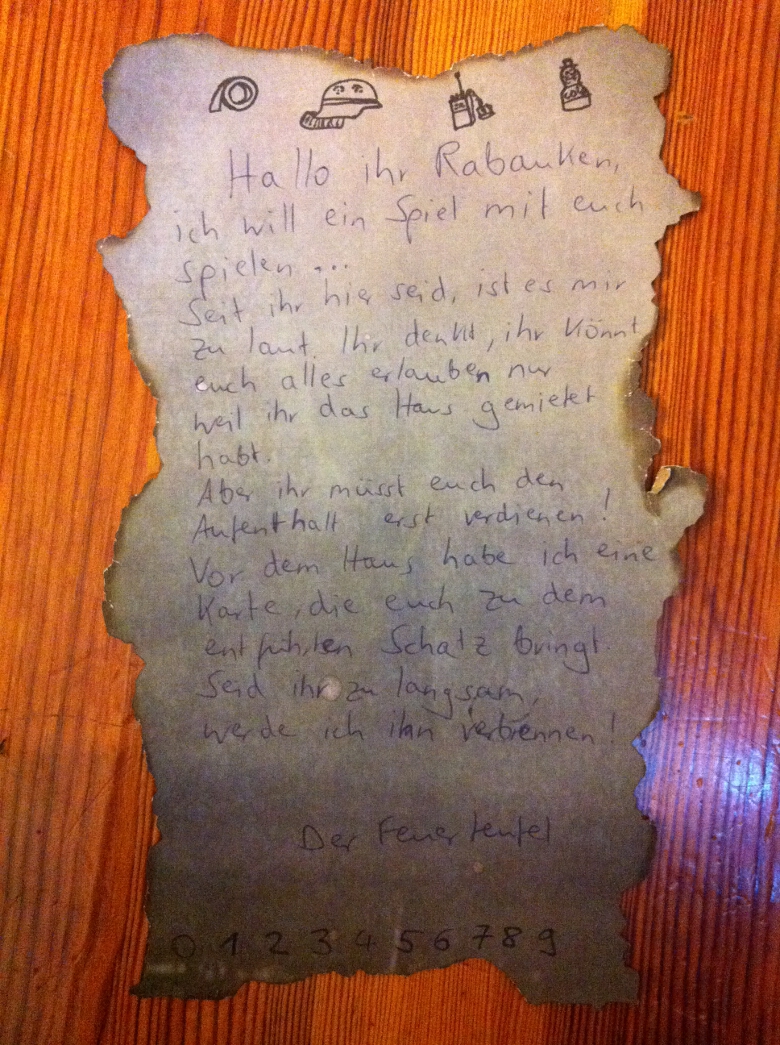 Hallo ihr Rabauken,
ich will ein Spiel mit euch
spielen ...
Seit ihr hier seid, ist es mir
zu laut. Ihr denkt, ihr könnt
euch alles erlauben nur
weil ihr das Haus gemietet
habt.
Aber ihr müsst euch den
Aufenthalt erst verdienen!
Vor dem Haus habe ich eine
Karte, die euch zu dem
entführten Schatz bringt.
Seid ihr zu langsam,
werde ich ihn verbrennen!
Der Feuerteufel
0 1 2 3 4 5 6 7 8 9